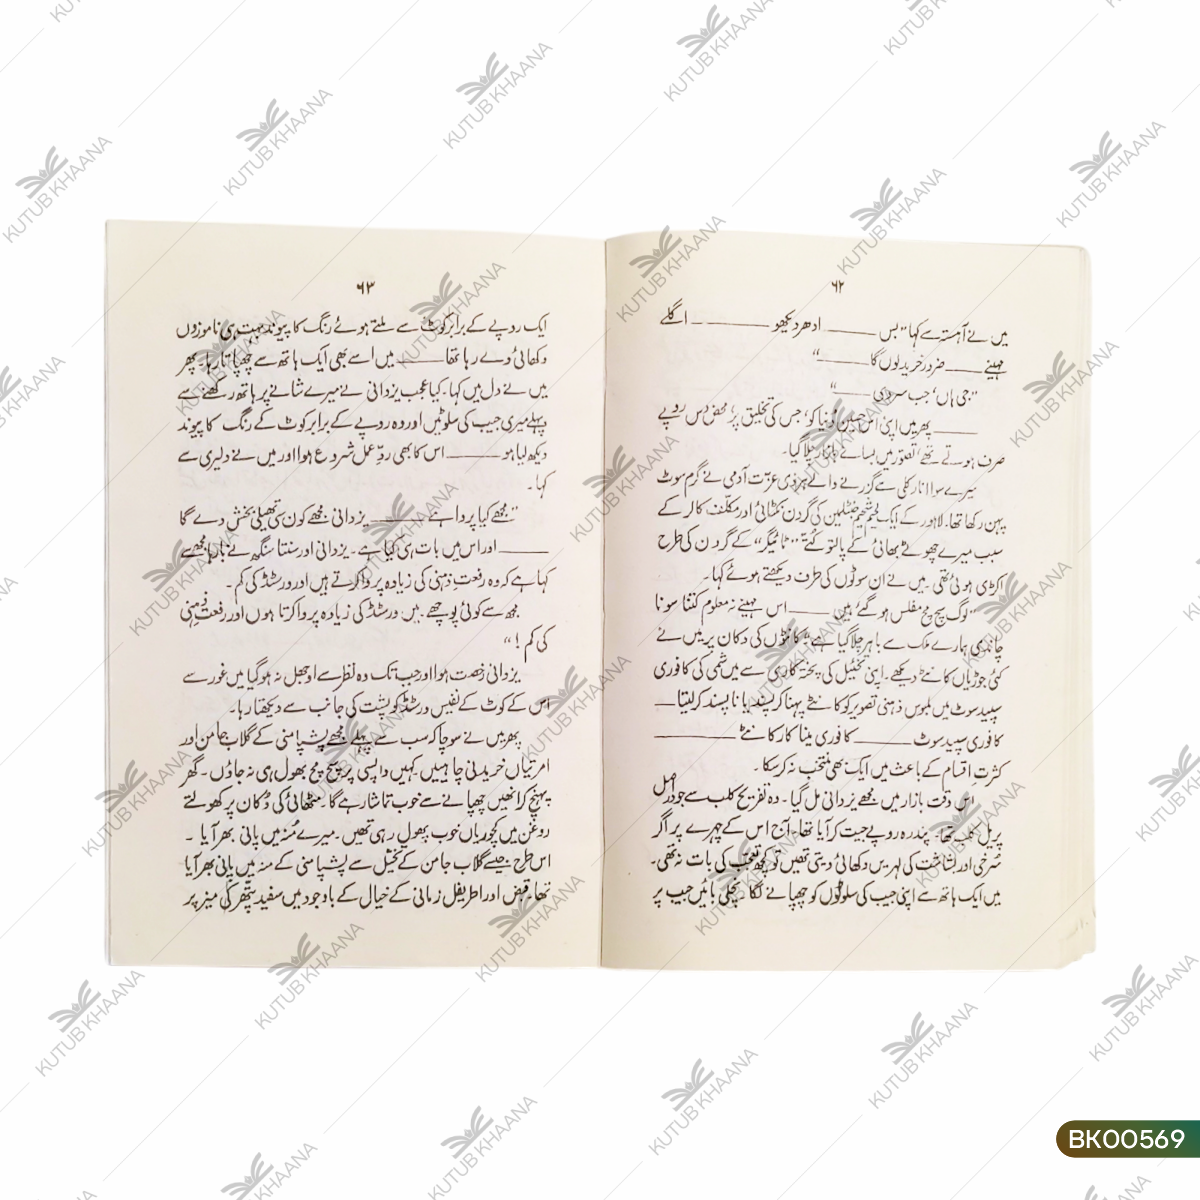 ۶۲
میں نے آہستہ سے کہا “بس ——— ادھر دیکھو ——— اگلے
مہینے ——— ضرور خرید لوں گا ———“
”جی ہاں‘ جب سردی ———“
——— پھر میں اپنی اس حسین دُنیا کو‘ جس کی تخلیق پر‘ محض دس روپے
صرف ہوتے تھے‘ تصور میں بسائے بازار چلا گیا۔
میرے سوا انارکلی سے گزرنے والے ہر ذی عزت آدمی نے گرم سوٹ
پہن رکھا تھا۔ لاہور کے ایک لحیم شحیم جنٹلمین کی گردن نکٹائی اور مکلّف کالر کے
سبب میرے چھوٹے بھائی کے پالتو کتے ”ٹائیگر“ کے گردن کی طرح
اکڑی ہوئی تھی۔ میں نے ان سوٹوں کی طرف دیکھتے ہوئے کہا۔
”لوگ سچ مچ مفلس ہو گئے ہیں ——— اس مہینے نہ معلوم کتنا سونا
چاندی ہمارے ملک سے باہر چلا گیا ہے“ کانٹوں کی دکان پر میں نے
کئی جوڑیاں کانٹے دیکھے۔ اپنی تخئیل کی پختہ کاری سے میں شمی کی کافوری
سپید سوٹ میں ملبوس ذہنی تصویر کو کانٹے پہنا کر پسند یا نا پسند کر لیتا ———
کافوری سپید سوٹ ——— کافوری مینا کار کانٹے ———
کثرت اقسام کے باعث میں ایک بھی منتخب نہ کر سکا۔
اس وقت بازار میں مجھے یزدانی مل گیا۔ وہ تفریح کلب سے جو در اصل
پریل کلب تھا۔ پندرہ روپے جیت کر آیا تھا۔ آج اس کے چہرے پر اگر
سُرخی اور بشاشت کی لہریں دکھائی دیتی تھیں تو کچھ تعجب کی بات نہ تھی۔
میں ایک ہاتھ سے اپنی جیب کی سلوٹوں کو چھپانے لگا۔ نچلی بائیں جیب پر
۶۳
ایک روپے کے برابر کوٹ سے ملتے ہوئے رنگ کا پیوند بہت ہی ناموزوں
دکھائی دے رہا تھا ——— میں اسے بھی ایک ہاتھ سے چھپاتا رہا۔ پھر
میں نے دل میں کہا۔ کیا عجب یزدانی نے میرے شانے پر ہاتھ رکھنے سے
پہلے میری جیب کی سلوٹیں اور وہ روپے کے برابر کوٹ کے رنگ کا پیوند
دیکھ لیا ہو ——— اس کا بھی ردِّ عمل شروع ہوا اور میں نے دلیری سے
کہا۔
”مجھے کیا پروا ہے ——— یزدانی مجھے کون سی تھیلی بخش دے گا
——— اور اس میں بات ہی کیا ہے۔ یزدانی اور سنتا سنگھ نے بارہا مجھ سے
کہا ہے کہ وہ رفعتِ ذہنی کی زیادہ پروا کرتے ہیں اور ورسٹڈ کی کم۔
مجھ سے کوئی پوچھے۔ میں ورسٹڈ کی زیادہ پروا کرتا ہوں اور رفعتِ ذہنی
کی کم !“
یزدانی رخصت ہوا اور جب تک وہ نظر سے اوجھل نہ ہو گیا میں غور سے
اس کے کوٹ کے نفیس ورسٹڈ کو پشت کی جانب سے دیکھتا رہا۔
پھر میں نے سوچا کہ سب سے پہلے مجھے پشپا منی کے گلاب جامن اور
امرتیاں خریدنی چاہئیں۔ کہیں واپسی پر سچ مچ بھول ہی نہ جاؤں۔ گھر
پہنچ کر انھیں چھپانے سے خوب تماشا رہے گا۔ مٹھائی کی دُکان پر کھولتے
روغن میں کچوریاں خوب پھول رہی تھیں۔ میرے مُنہ میں پانی بھر آیا۔
اس طرح جیسے گلاب جامن کے تخیل سے پشپا منی کے منہ میں پانی بھر آیا
تھا۔ قبض اور اطریفل زمانی کے خیال کے باوجود میں سفید پتھر کی میز پر
KUTUB KHAANA
BK00569